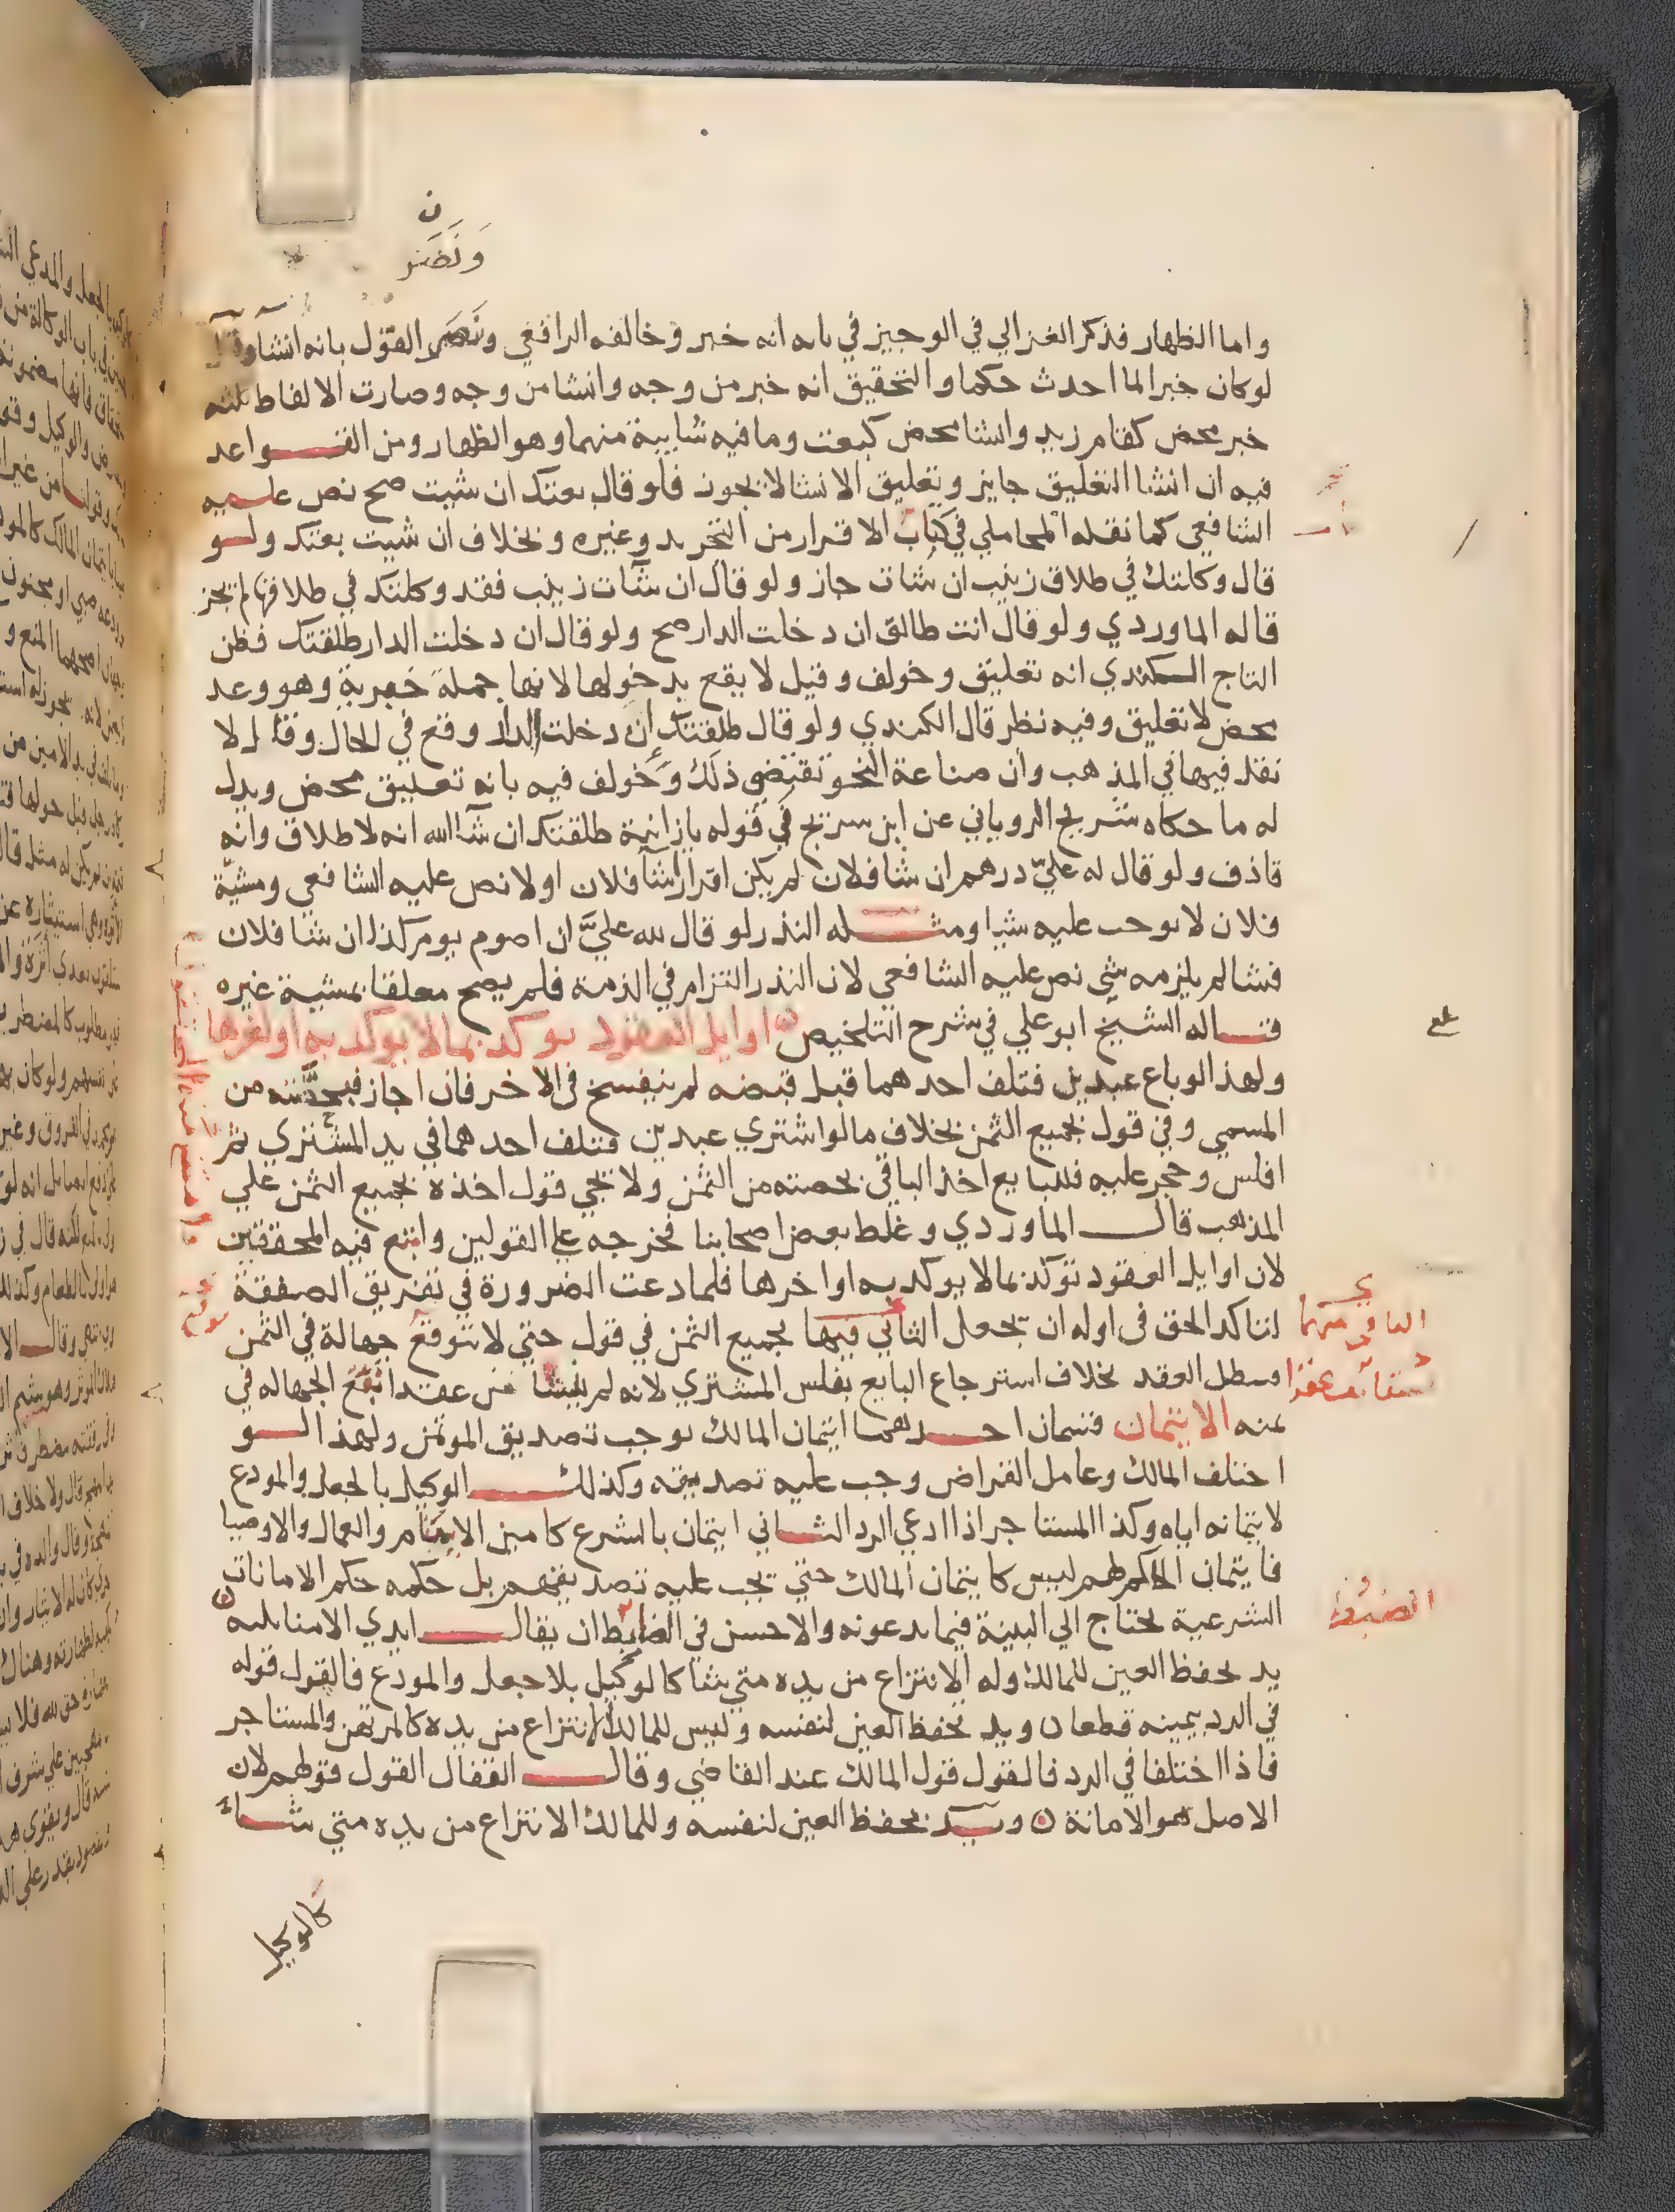 ن
ونصر
واما الظهار فذكر الغزالي في الوجيز في بابه انه خبر وخالفه الرافعي ونصر القول بانه انشا وقال
لو كان خبرا لما احدث حكما والتحقيق انه خبر من وجه وانشا من وجه وصارت الالفاظ ثلثه
خبر محض كقام زيد وانشا محض كبعت وما فيه شايبة منهما وهو الظهار ومن القواعد
فيه ان انشا التعليق جايز وتعليق الانشا لا يجوز فلو قال بعتك ان شيت صح نص عليه
الشافعي كما نقله المحاملي في كتاب الاقرار من التجريد وغيره وبخلاف ان شيت بعتك ولو
قال وكلتك في طلاق زينب ان شات جاز ولو قال ان شات زينب فقد وكلتك في طلاقها لم يجز
قاله الماوردي ولو قال انت طالق ان دخلت الدار صح ولو قال ان دخلت الدار طلقتك فظن
التاج الكندي انه تعليق وخولف وقيل لا يقع بدخولها لانها جملة خبرية وهو وعد
محض لا تعليق وفيه نظر قال الكندي ولو قال طلقتك إن دخلت الدار وقع في الحال وقال لا
نقل فيها في المذهب وان صناعة النحو تقتضي ذلك وخولف فيه بانه تعليق محض ويدل
له ما حكاه شريح الروياني عن ابن سريج في قوله يازانية طلقتك ان شا الله انه لا طلاق وانه
قاذف ولو قال له عليّ درهم ان شا فلان لم يكن اقرارا شا فلان او لا نص عليه الشافعي ومشيّة
فلان لا توجب عليه شيا ومثله النذر لو قال لله عليَّ ان اصوم يوم كذا ان شا فلان
فشا لم يلزمه شي نص عليه الشافعي لان النذر التزام في الذمة فلم يصح معلقا بمشية غيره
قاله الشيخ ابو علي في شرح التلخيص اوايل العقود توكد بما لا يوكد به اواخرها
ولهذا لو باع عبدين فتلف احدهما قبل قبضه لم ينفسخ في الاخر فان اجاز فبحصته من
المسمي وفي قول بجميع الثمن بخلاف ما لو اشتري عبدين فتلف احدهما في يد المشتري ثم
افلس وحجر عليه فللبايع اخذ الباقي بحصته من الثمن ولا يجي قول اخذه بجميع الثمن علي
المذهب قال الماوردي وغلط بعض اصحابنا فخرجه علي القولين واتبع فيه المحققين
لان اوايل العقود توكد بما لا يوكد به اواخرها فلما دعت الضرورة في تفريق الصفقة
لتاكد الحق في اوله ان يجعل الثاني فيها بجميع الثمن في قول حتي لا تتوقع جهالة في الثمن
وسطل العقد بخلاف استرجاع البايع بفلس المشتري لانه لم ينشا عن عقد اتقع الجهاله في
ثمنه الايتمان قسمان احدهما ايتمان المالك يوجب تصديق الموتمن ولهذا لو
اختلف المالك وعامل القراض وجب عليه تصديقه وكذلك الوكيل بالجعل والمودع
لايتمانه اياه وكذا المستاجر اذا ادعي الرد الثاني ايتمان بالشرع كامين الايتام والعمال والاوصيا
فايتمان الحاكم لهم ليس كايتمان المالك حتي يجب عليه تصديقهم بل حكمه حكم الامانات
الشرعية يحتاج الي البينة فيما يدعونه والاحسن في الضابط ان يقال ايدي الامنا ثلثه
يد بحفظ العين للمالك وله الانتزاع من يده متي شا كالوكيل بلا جعل والمودع فالقول قوله
في الرد بيمينه قطعا ويد بحفظ العين لنفسه وليس للمالك الانتزاع من يده كالمرتهن والمستاجر
فاذا اختلفا في الرد فالقول قول المالك عند القاضي وقال القفال القول قولهم لان
الاصل هو الامانة ويد بحفظ العين لنفسه وللمالك الانتزاع من يده متي شا
كالوكيل